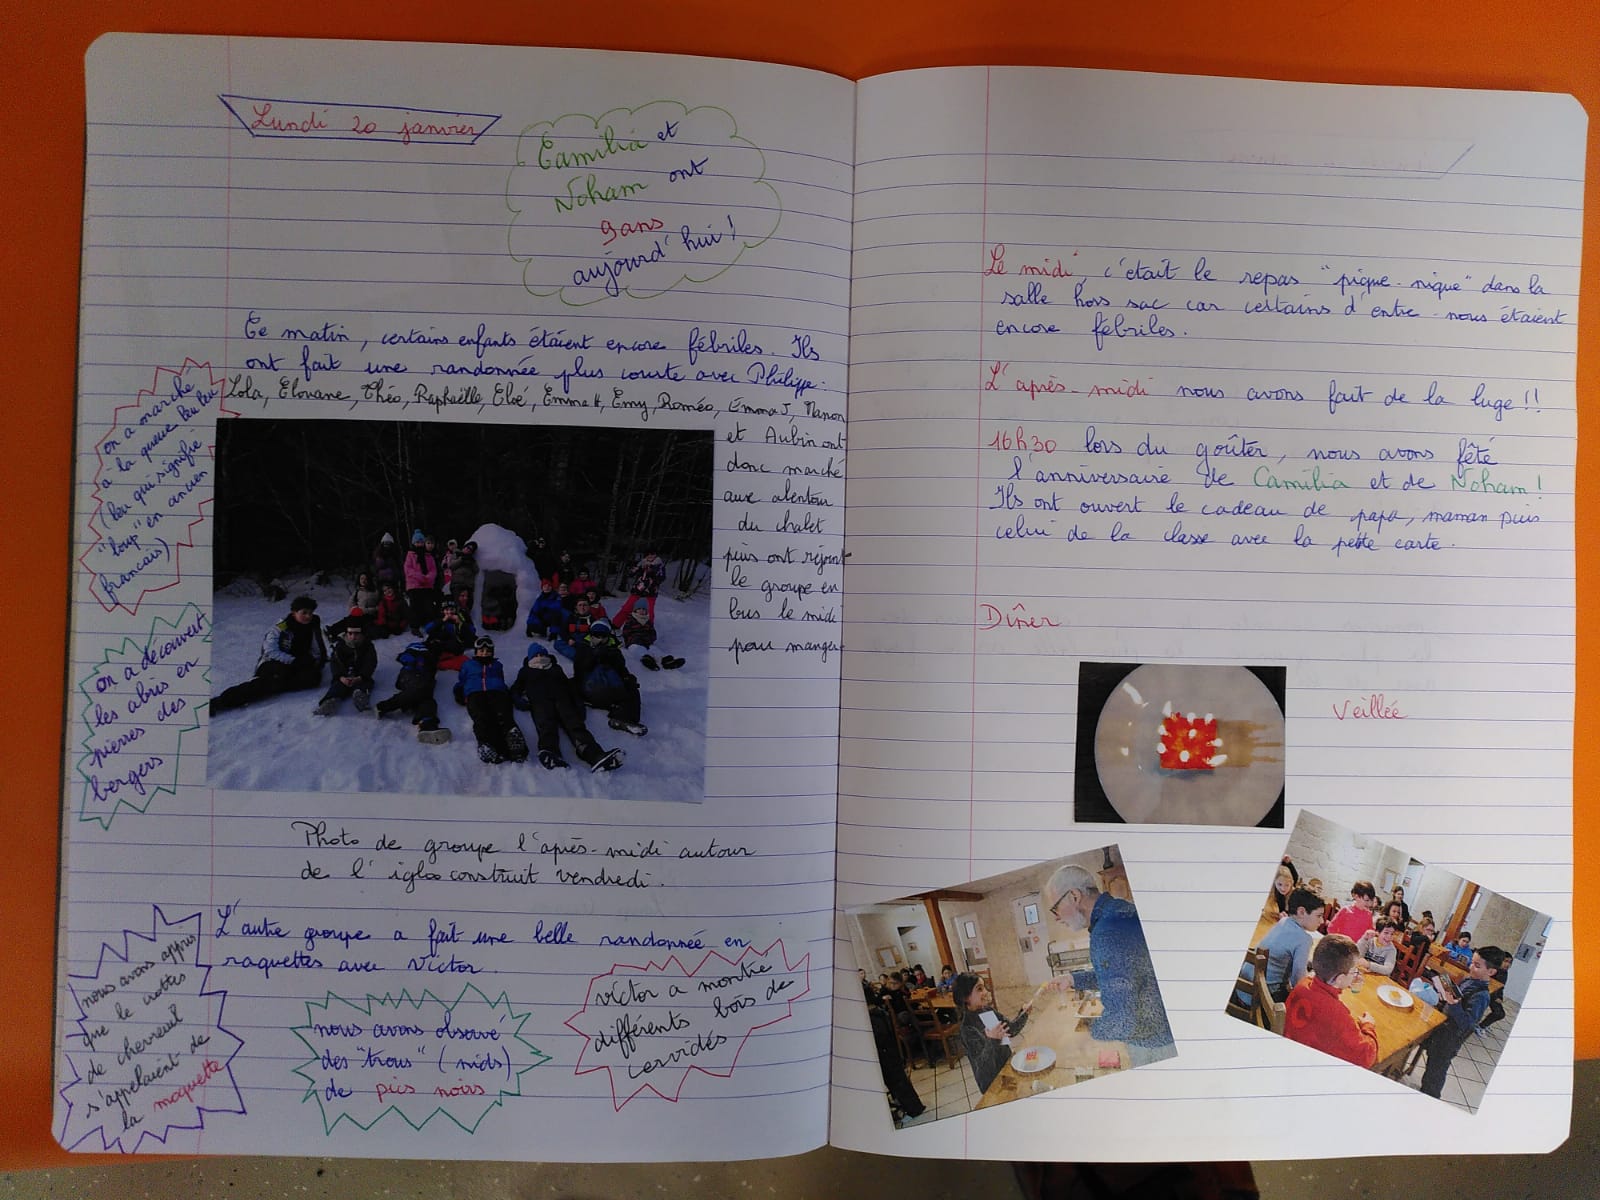 Lundi 20 janvier
Camilia et
Noham ont
9 ans
aujourd'hui !
Ce matin, certains enfants étaient encore fébriles. Ils
ont fait une randonnée plus courte avec Philippe :
Lola, Elouane, Théo, Raphaëlle, Eloé, Emma H, Emy, Roméo, Emma J, Manon
et Aubin ont
donc marché
aux alentour
du chalet
puis ont rejoint
le groupe en
bus le midi
pour manger
on a marché
à la queue leu leu
(leu qui signifie
"loup" en ancien
français)
on a découvert
les abris en
pierres des
bergers
Photo de groupe l'après-midi autour
de l'igloo construit vendredi.
L'autre groupe a fait une belle randonnée en
raquettes avec Victor.
nous avons appris
que le crottes
de chevreuil
s'appelaient de
la moquette
nous avons observé
des "trous" (nids)
de pics noirs
Victor a montré
différents bois de
cervidés
Le midi, c'était le repas "pique-nique" dans la
salle hors sac car certains d'entre-nous étaient
encore fébriles.
L'après-midi nous avons fait de la luge !!
16h30 lors du goûter, nous avons fêté
l'anniversaire de Camilia et de Noham !
Ils ont ouvert le cadeau de papa, maman puis
celui de la classe avec la petite carte.
Dîner
Veillée